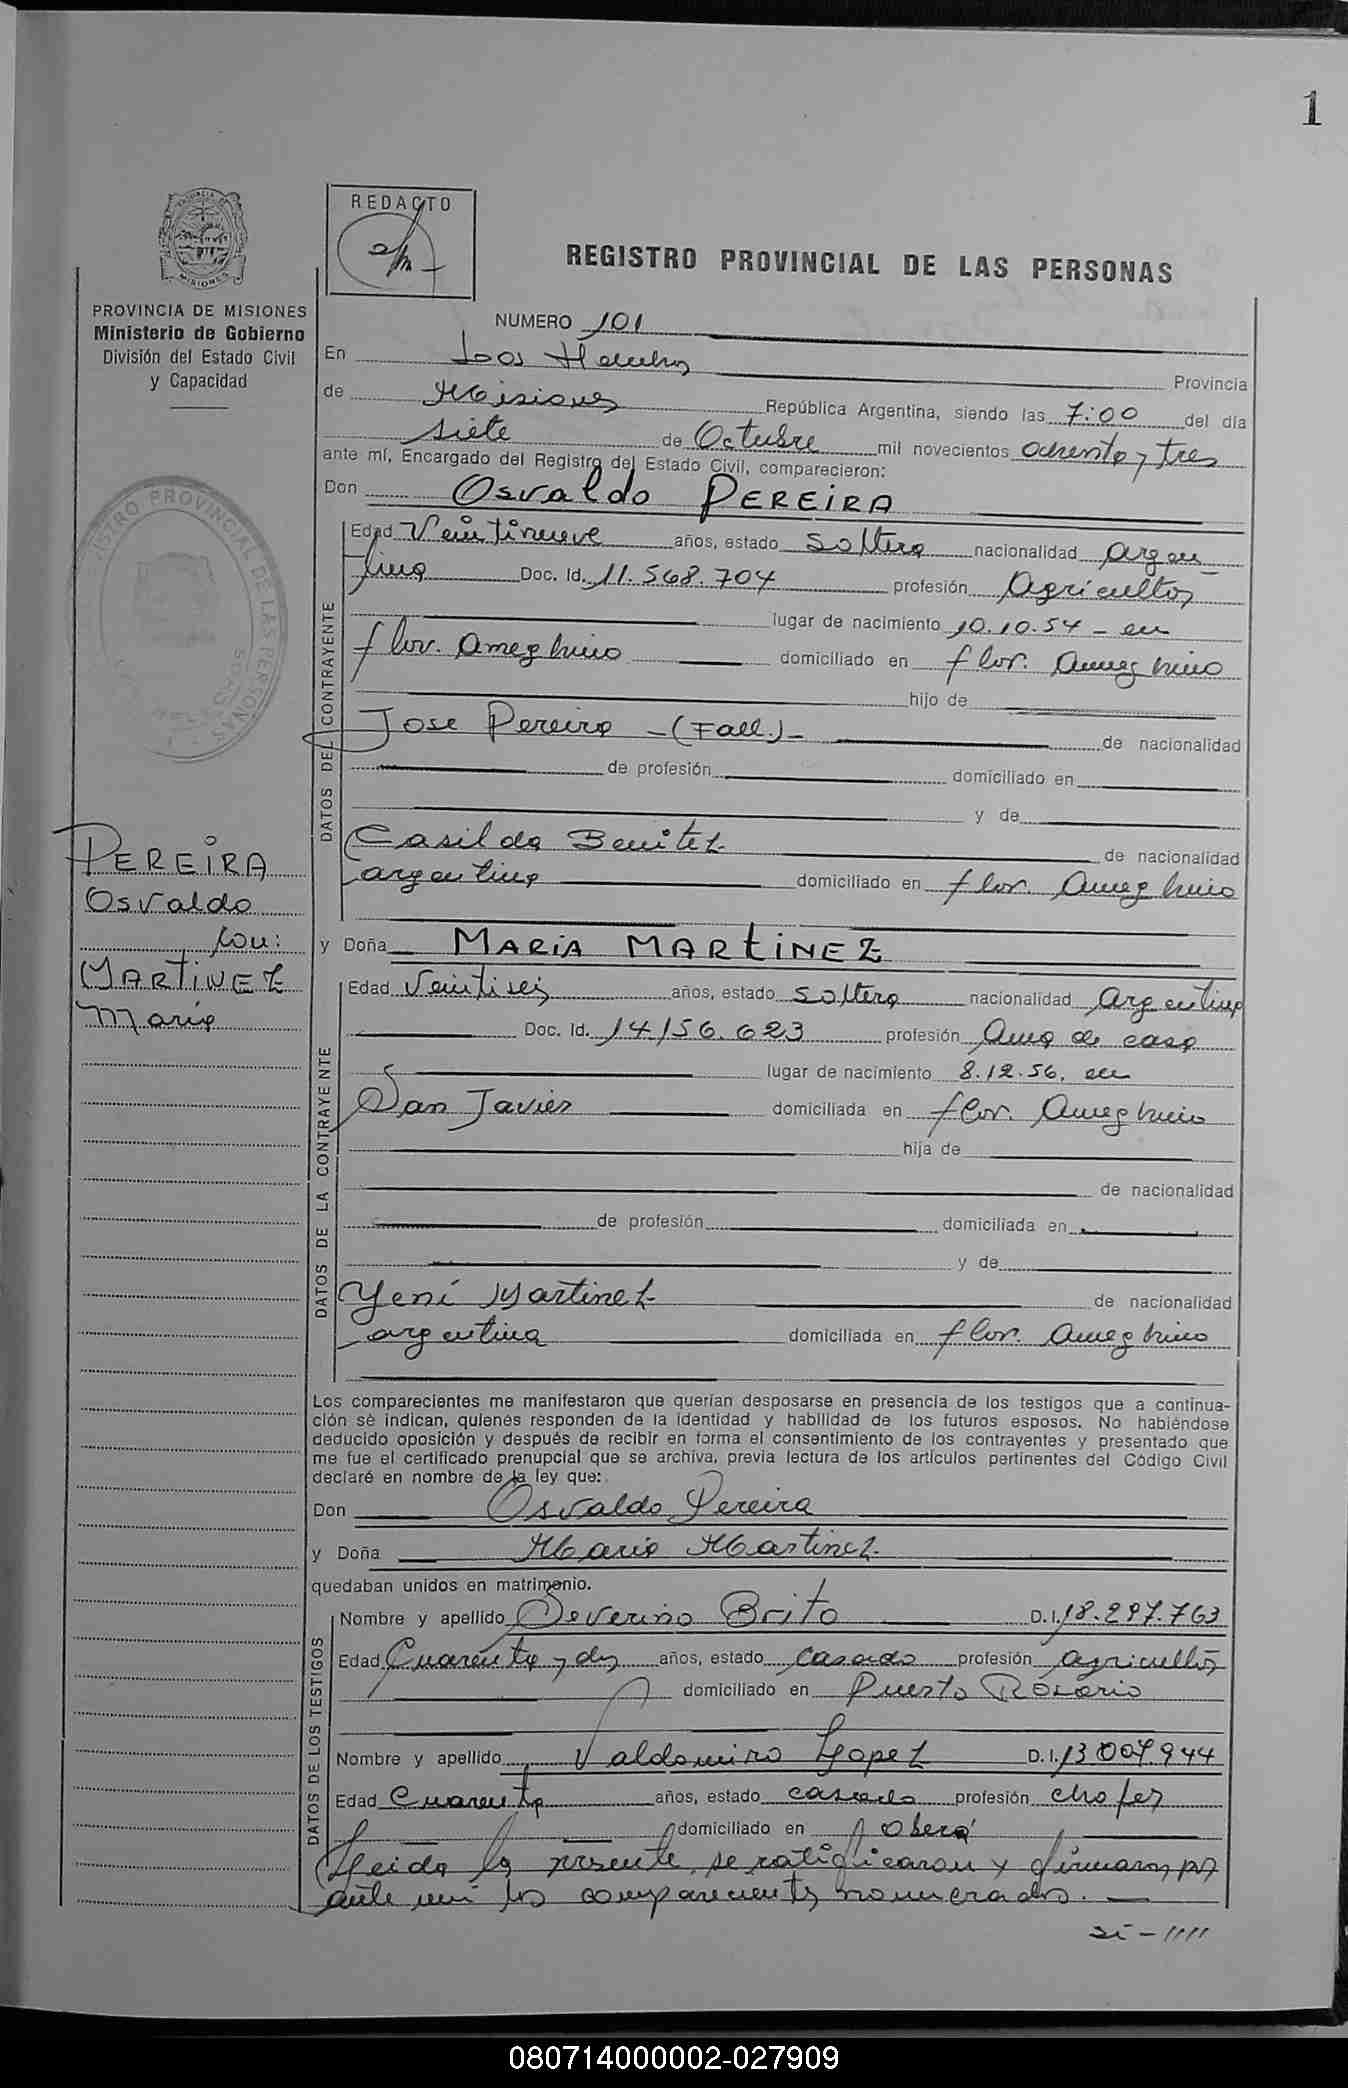 1
REDACTO
REGISTRO PROVINCIAL DE LAS PERSONAS
PROVINCIA DE MISIONES
Ministerio de Gobierno
División del Estado Civil
y Capacidad
NUMERO 101
En Los Helechos
Provincia
de Misiones República Argentina, siendo las 7:00 del día
siete de Octubre mil novecientos ochenta y tres
ante mí, Encargado del Registro del Estado Civil, comparecieron:
Don Osvaldo PEREIRA
DATOS DEL CONTRAYENTE
Edad Veintinueve años, estado soltero nacionalidad argen
tina Doc. Id. 11.568.704 profesión Agricultor
lugar de nacimiento 10.10.54 - en
flor. Ameghino domiciliado en flor. Ameghino
hijo de
Jose Pereira - (Fall.) - de nacionalidad
de profesión domiciliado en
y de
Casilda Benitez de nacionalidad
argentina domiciliado en flor. Ameghino
PEREIRA
Osvaldo
con:
MARTINEZ
Maria
y Doña MARIA MARTINEZ
DATOS DE LA CONTRAYENTE
Edad Veintiseis años, estado soltera nacionalidad Argentina
Doc. Id. 14.156.623 profesión Ama de casa
lugar de nacimiento 8.12.56. en
San Javier domiciliada en flor. Ameghino
hija de
de nacionalidad
de profesión domiciliada en
y de
Yení Martinez de nacionalidad
argentina domiciliada en flor. Ameghino
Los comparecientes me manifestaron que querían desposarse en presencia de los testigos que a continua-
ción se indican, quienes responden de la identidad y habilidad de los futuros esposos. No habiéndose
deducido oposición y después de recibir en forma el consentimiento de los contrayentes y presentado que
me fue el certificado prenupcial que se archiva, previa lectura de los artículos pertinentes del Código Civil
declaré en nombre de la ley que:
Don Osvaldo Pereira
y Doña Maria Martinez
quedaban unidos en matrimonio.
DATOS DE LOS TESTIGOS
Nombre y apellido Severino Brito D.I. 18.297.763
Edad Cuarenta y dos años, estado casado profesión agricultor
domiciliado en Puerto Rosario
Nombre y apellido Valdomiro Lopez D.I. 13007944
Edad Cuarenta años, estado casado profesión chofer
domiciliado en Oberá
Leida la presente, se ratificaron y firmaron por
ante mi los comparecientes nomencrados.
080714000002-027909